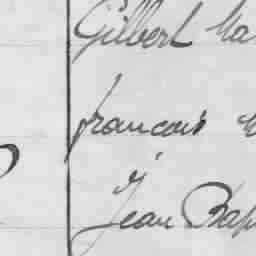 Gilbert Ma
francois
Jean Bap